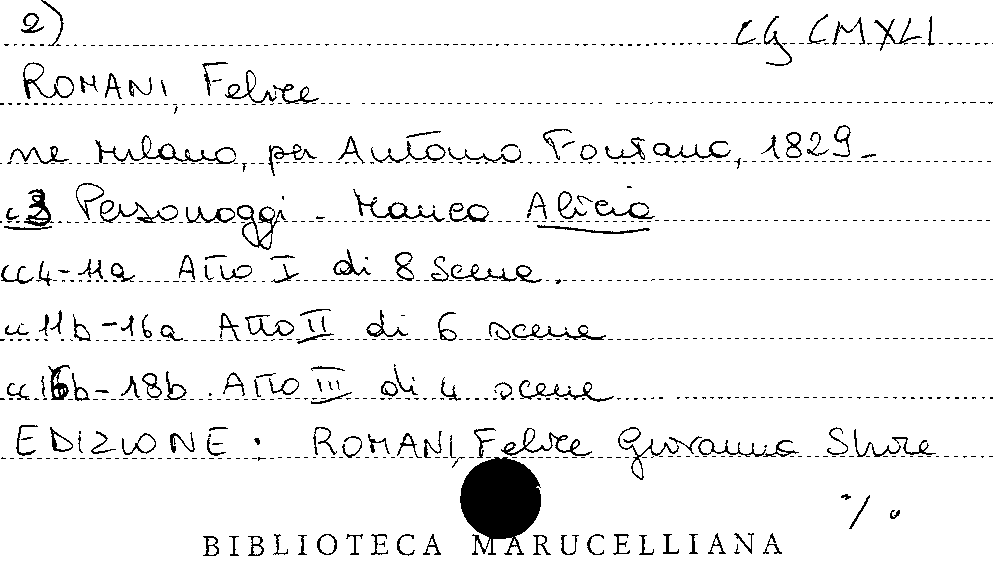 2) CG CMXLI
ROMANI, Felice
ne Milano, per Antonio Fontana, 1829-
c3 Personaggi - Manca Alicia
cc4-11a Atto I di 8 scene.
cc 11b-16a Atto II di 6 scene
cc 16b-18b. Atto III di 4 scene
EDIZIONE: ROMANI, Felice Giovanna Shore
"/o
BIBLIOTECA MARUCELLIANA